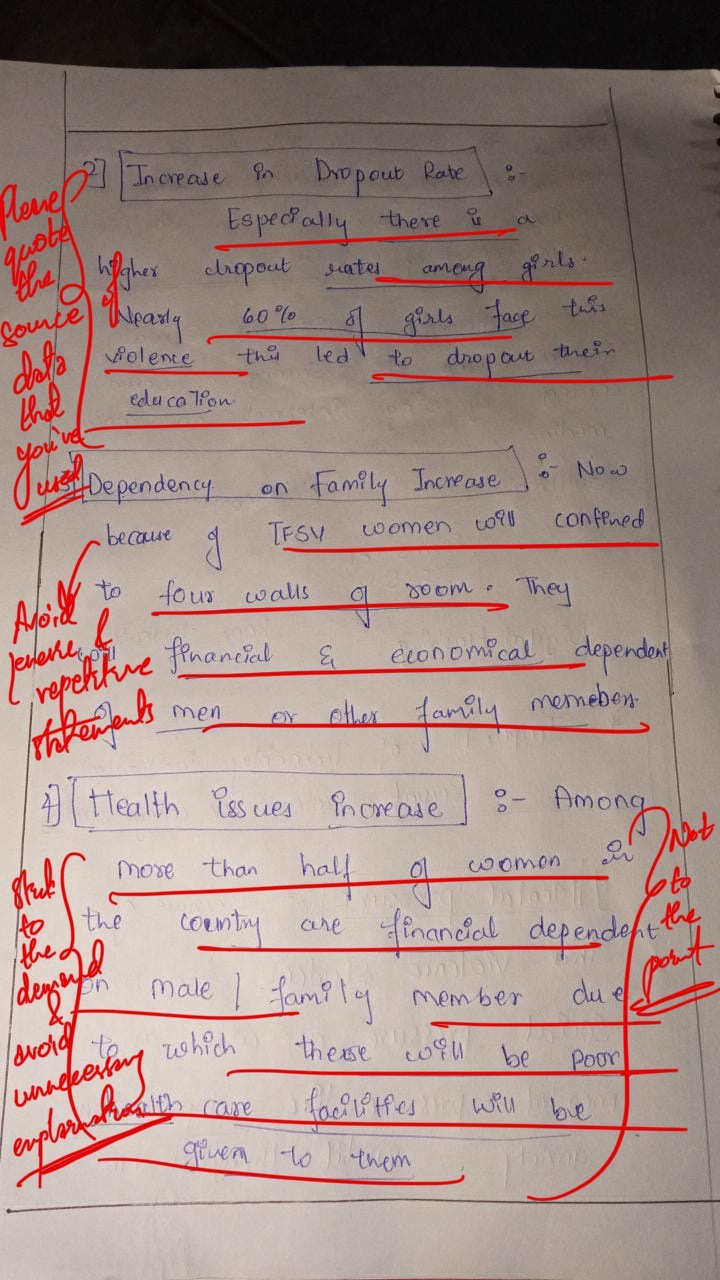 2] Increase in Dropout Rate :-
Especially there is a
higher dropout rates among girls.
Nearly 60% of girls face this
violence this led to dropout their
education
Please
quote
the
source
data
that
you've
used
Dependency on Family Increase :- Now
because of TFSV women will confined
to four walls of room. They
will financial & economical dependent
of men or other family memebers.
Avoid
&
repetitive
statements
4] Health issues increase :- Among
more than half of women in
the country are financial dependent
on male / family member due
to which these will be poor
health care facilities will be
given to them
Stick
to
the
demand
&
avoid
unnecessary
explanation
Not
to
the
point